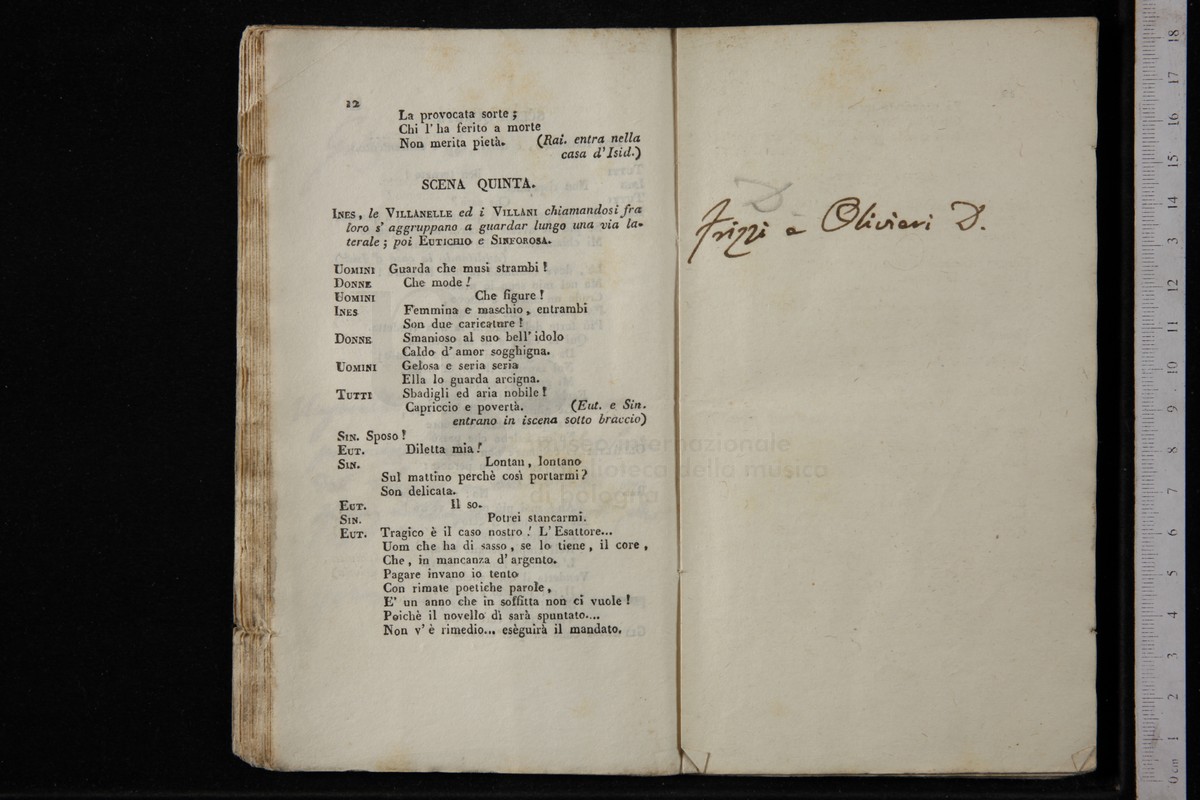 12
La provocata sorte ;
Chi l' ha ferito a morte
Non merita pietà. (Rai. entra nella
casa d' Isid.)
SCENA QUINTA.
INES, le VILLANELLE ed i VILLANI chiamandosi fra
loro s' aggruppano a guardar lungo una via la-
terale ; poi EUTICHIO e SINFOROSA.
UOMINI Guarda che musi strambi !
DONNE Che mode !
UOMINI Che figure !
INES Femmina e maschio, entrambi
Son due caricature !
DONNE Smanioso al suo bell' idolo
Caldo d' amor sogghigna.
UOMINI Gelosa e seria seria
Ella lo guarda arcigna.
TUTTI Sbadigli ed aria nobile !
Capriccio e povertà. (Eut. e Sin.
entrano in iscena sotto braccio)
SIN. Sposo !
EUT. Diletta mia !
SIN. Lontan, lontano
Sul mattino perchè così portarmi ?
Son delicata.
EUT. Il so.
SIN. Potrei stancarmi.
EUT. Tragico è il caso nostro ! L' Esattore...
Uom che ha di sasso, se lo tiene, il core,
Che, in mancanza d' argento.
Pagare invano io tento
Con rimate poetiche parole,
E' un anno che in soffitta non ci vuole !
Poichè il novello dì sarà spuntato....
Non v' è rimedio... eseguirà il mandato.
D
Frizzi e Olivieri D.
museo internazionale
biblioteca della musica
di bologna
0 cm 1 2 3 4 5 6 7 8 9 10 11 12 13 14 15 16 17 18